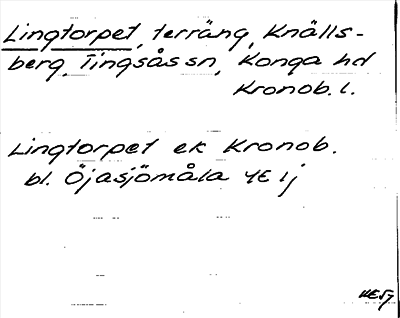 Lingtorpet, terräng, Knälls-
berg, Tingsås sn, Konga hd
Kronob. l.
Lingtorpet ek Kronob.
bl. Öjasjömåla 4E 1j